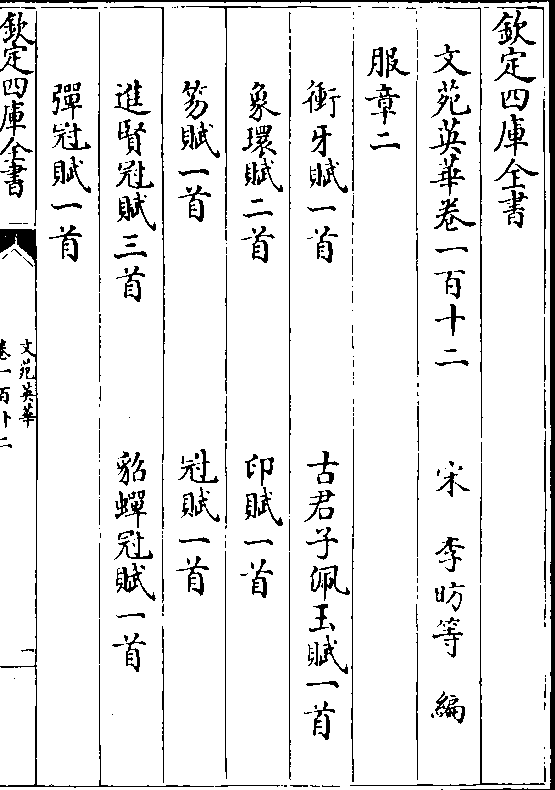 欽定四庫全書
文苑英華卷一百十二 宋 李昉等 編
服章二
衝牙賦一首 古君子佩玉賦一首
象環賦二首 印賦一首
笏賦一首 冠賦一首
進賢冠賦三首 貂蟬冠賦一首
彈冠賦一首
欽定四庫全書
文苑英華
卷一百十二
一